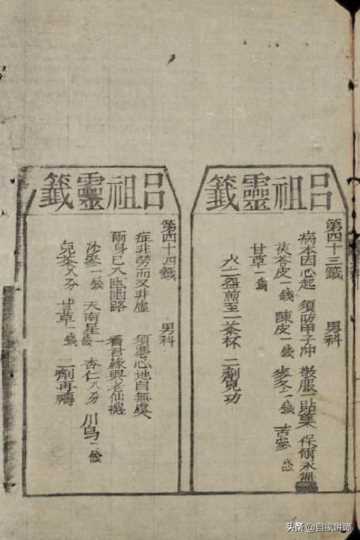 呂祖靈籤
第四十三籤 男科
病本因心起 須防甲子冲 服一貼藥 保爾永無
茯苓皮一錢 陳皮一錢 麥冬一錢 苦參
甘草一錢
水二碗煎至一茶杯 二劑見功
呂祖靈籤
第四十四籤 男科
症非勞而又非虛 須要心地自無虞
兩身已入陰路 看君緣與老仙
沙參一錢 天南星一錢 杏仁八分 川烏一錢
兒茶八分 甘草一錢 二劑再禱
头条